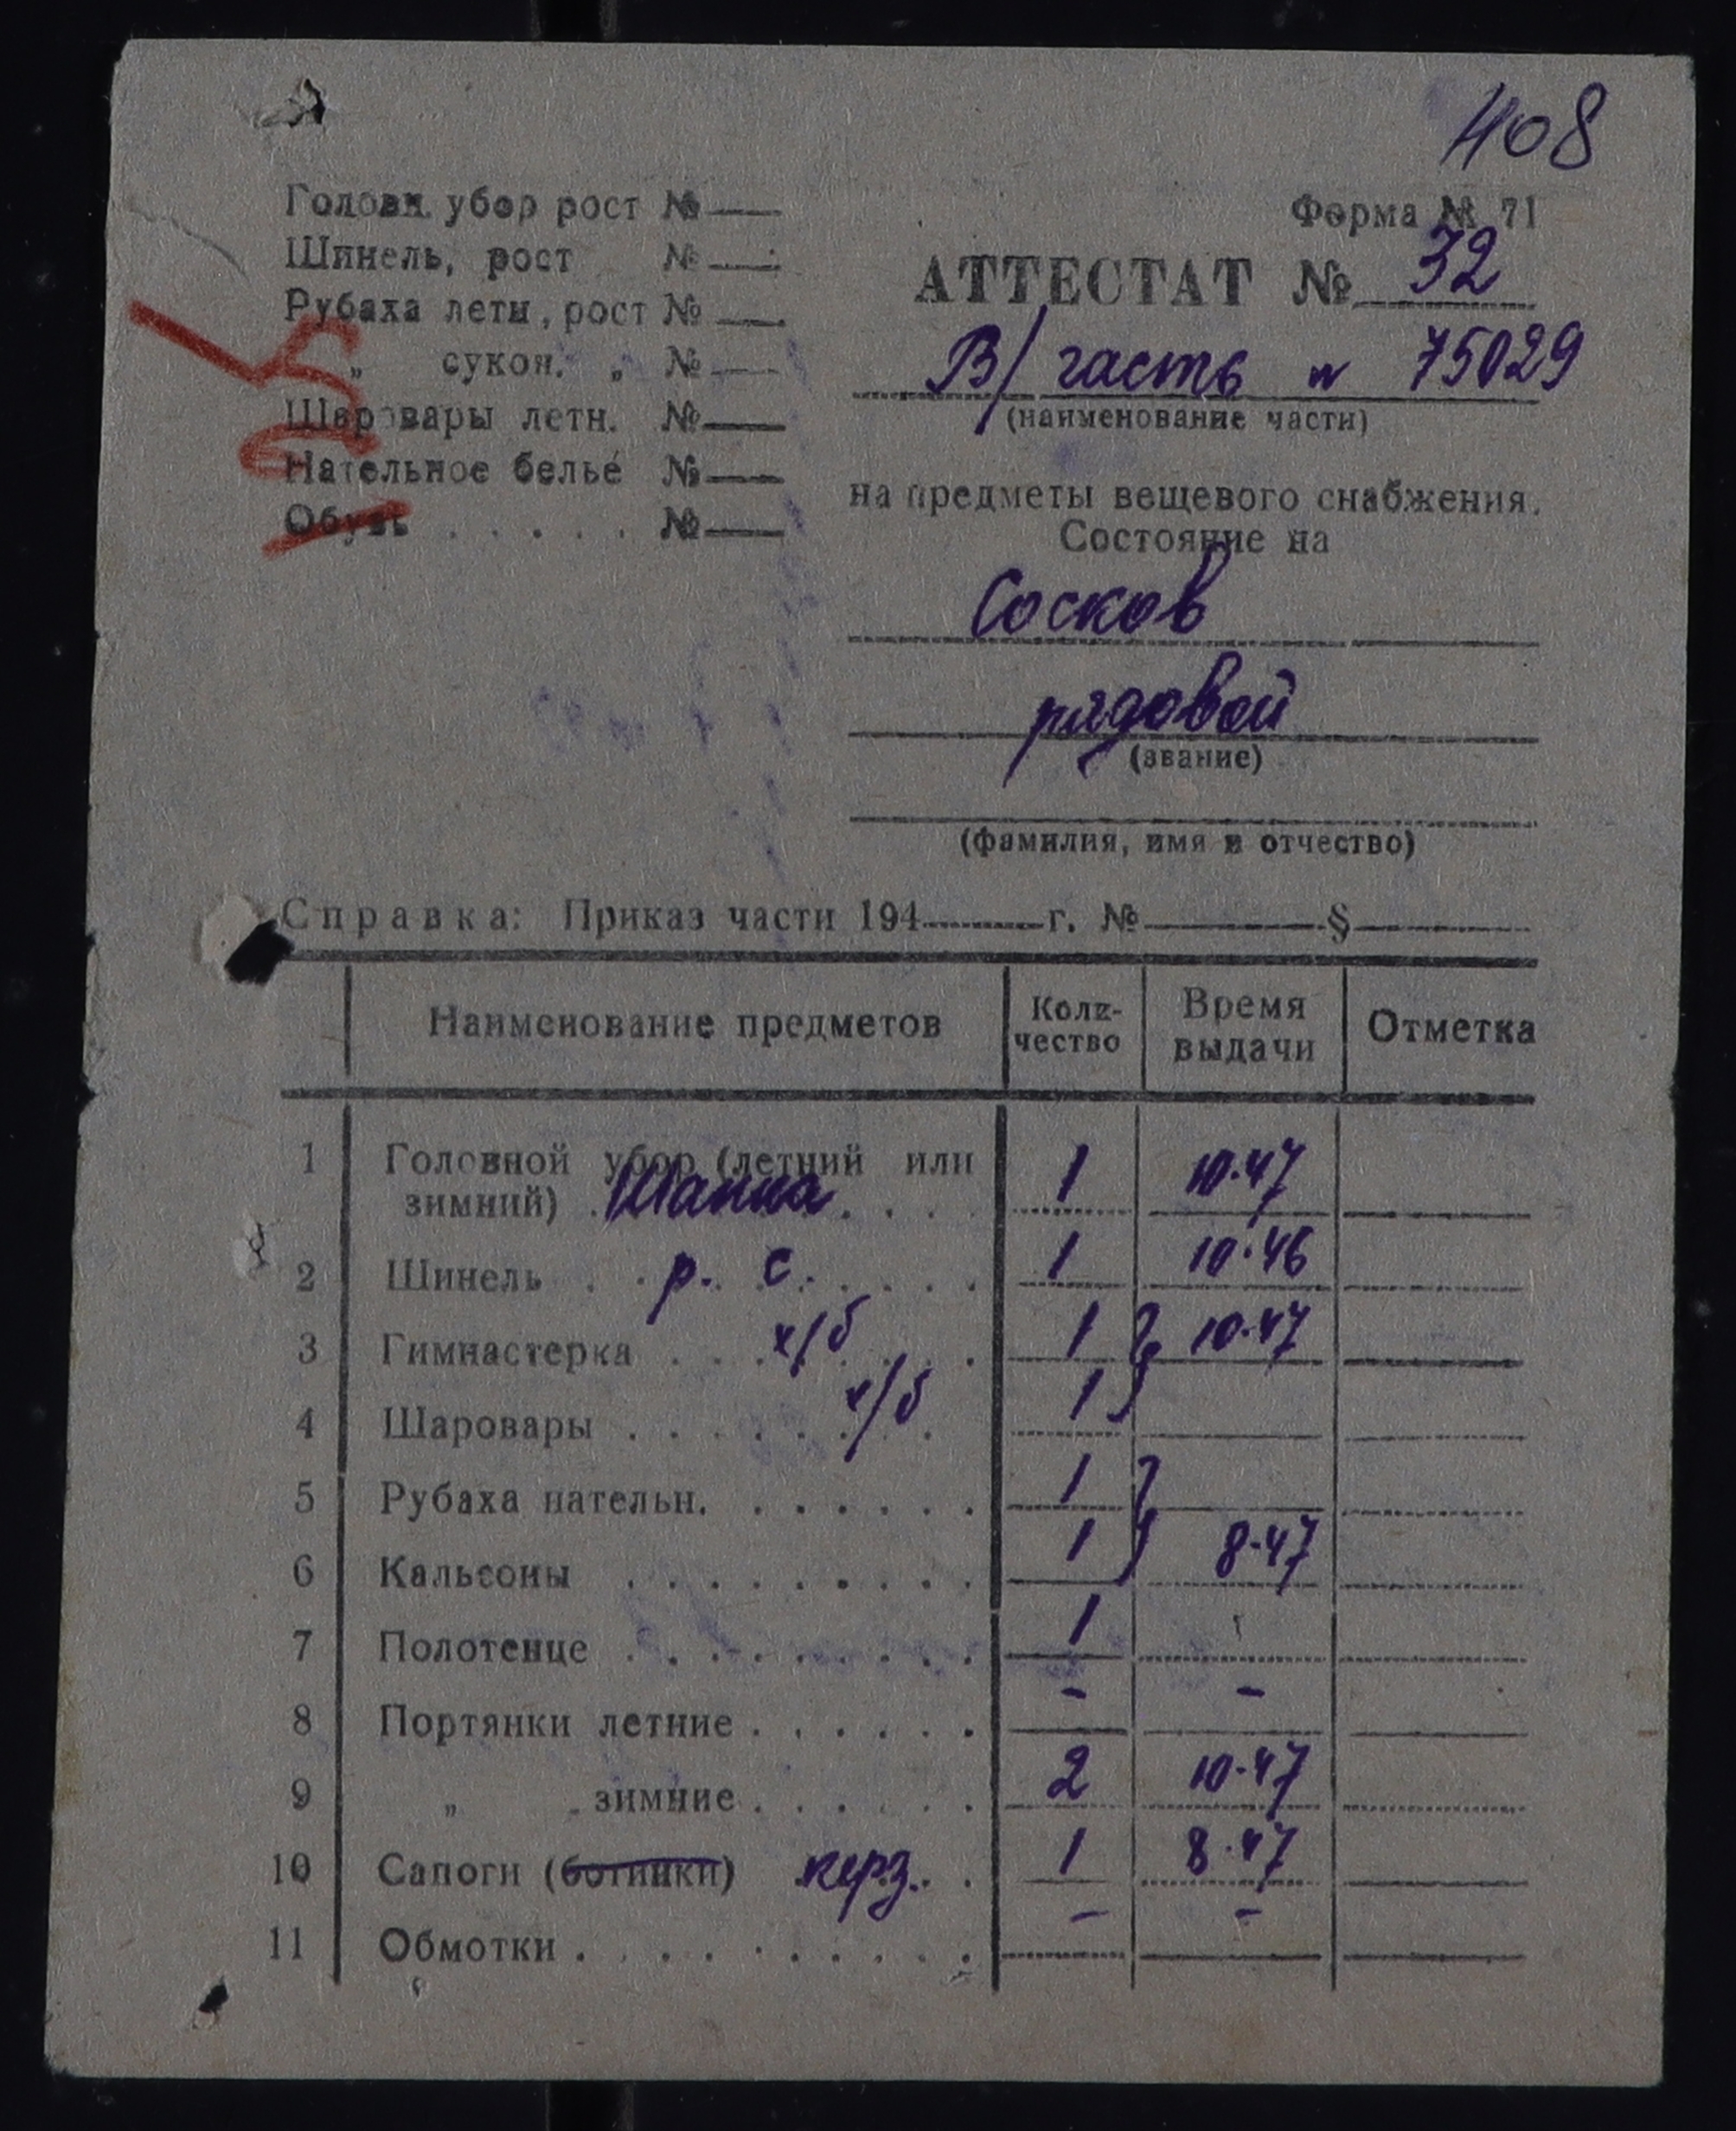 408
Головн. убор рост №
Шинель, рост №
Рубаха летн, рост №
„ сукон. „ №
Шаровары летн. №
Нательное белье №
Обувь . . . . . №
Форма № 71
АТТЕСТАТ № 32
В/часть № 75029
(наименование части)
на предметы вещевого снабжения.
Состояние на
Сосков
рядовой
(звание)
(фамилия, имя и отчество)
Справка: Приказ части 194 г. № §
Наименование предметов Коли-чество Время выдачи Отметка
1 Головной убор (летний или
зимний) Шапка 1 10·47
2 Шинель р. с. 1 10·46
3 Гимнастерка х/б 1 10·47
4 Шаровары х/б 1
5 Рубаха нательн. 1
6 Кальсоны 1 8·47
7 Полотенце 1
8 Портянки летние - -
9 „ зимние 2 10·47
10 Сапоги (ботинки) кирз. 1 8·47
11 Обмотки - -